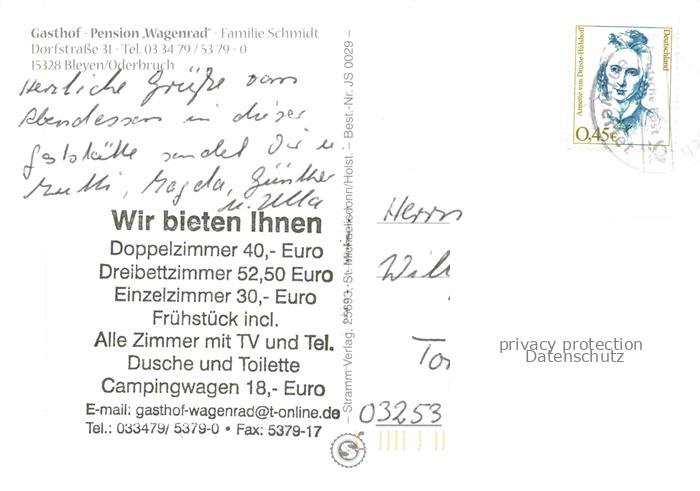 Gasthof · Pension „Wagenrad“ · Familie Schmidt
Dorfstraße 31 · Tel. 03 34 79 / 53 79 - 0
15328 Bleyen/Oderbruch
Herzliche Grüße vom
Abendessen in dieser
Gaststätte sendet Dir u.
Mutti, Magda, Günther
u. Ulla
Wir bieten Ihnen
Doppelzimmer 40,- Euro
Dreibettzimmer 52,50 Euro
Einzelzimmer 30,- Euro
Frühstück incl.
Alle Zimmer mit TV und Tel.
Dusche und Toilette
Campingwagen 18,- Euro
E-mail: gasthof-wagenrad@t-online.de
Tel.: 033479/ 5379-0 • Fax: 5379-17
– Stramm-Verlag, 25693 St. Michaelisdonn/Holst. – Best.-Nr. JS 0029 –
Annette von Droste-Hülshoff
Deutschland
0,45€
Herrn
Wil
To
03253
privacy protection
Datenschutz